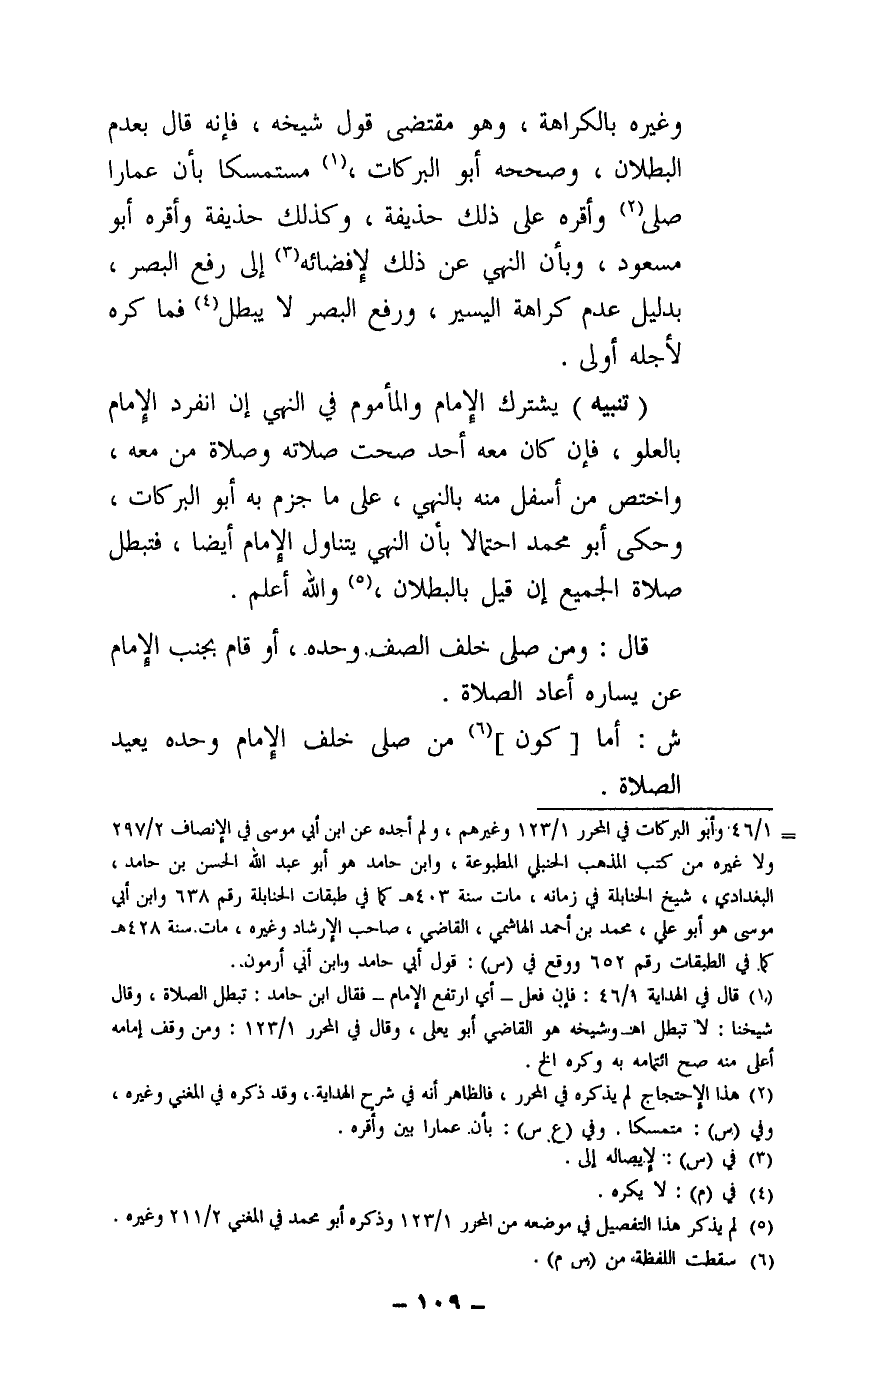 وغيره بالكراهة ، وهو مقتضى قول شيخه ، فإنه قال بعدم
البطلان ، وصححه أبو البركات ،(١) مستمسكا بأن عمارا
صلى(٢) وأقره على ذلك حذيفة ، وكذلك حذيفة وأقره أبو
مسعود ، وبأن النهي عن ذلك لإفضائه(٣) إلى رفع البصر ،
بدليل عدم كراهة اليسير ، ورفع البصر لا يبطل(٤) فما كره
لأجله أولى .
( تنبيه ) يشترك الإمام والمأموم في النهي إن انفرد الإمام
بالعلو ، فإن كان معه أحد صحت صلاته وصلاة من معه ،
واختص من أسفل منه بالنهي ، على ما جزم به أبو البركات ،
وحكى أبو محمد احتمالا بأن النهي يتناول الإمام أيضا ، فتبطل
صلاة الجميع إن قيل بالبطلان ،(٥) والله أعلم .
قال : ومن صلى خلف الصف وحده ، أو قام بجنب الإمام
عن يساره أعاد الصلاة .
ش : أما [ كون ](٦) من صلى خلف الإمام وحده يعيد
الصلاة .
= ٤٦/١ وأبو البركات في المحرر ١٢٣/١ وغيرهم ، ولم أجده عن ابن أبي موسى في الإنصاف ٢٩٧/٢
ولا غيره من كتب المذهب الحنبلي المطبوعة ، وابن حامد هو أبو عبد الله الحسن بن حامد ،
البغدادي ، شيخ الحنابلة في زمانه ، مات سنة ٤٠٣هـ كما في طبقات الحنابلة رقم ٦٣٨ وابن أبي
موسى هو أبو علي ، محمد بن أحمد الهاشمي ، القاضي ، صاحب الإرشاد وغيره ، مات سنة ٤٢٨هـ
كما في الطبقات رقم ٦٥٢ ووقع في (س) : قول أبي حامد وابن أبي أرمون .
(١) قال في الهداية ٤٦/١ : فإن فعل – أي ارتفع الإمام – فقال ابن حامد : تبطل الصلاة ، وقال
شيخنا : لا تبطل اهـ وشيخه هو القاضي أبو يعلى ، وقال في المحرر ١٢٣/١ : ومن وقف إمامه
أعلى منه صح ائتمامه به وكره الخ .
(٢) هذا الإحتجاج لم يذكره في المحرر ، فالظاهر أنه في شرح الهداية ، وقد ذكره في المغني وغيره ،
وفي (س) : متمسكا . وفي (ع س) : بأن عمارا بين وأقره .
(٣) في (س) : لإيصاله إلى .
(٤) في (م) : لا يكره .
(٥) لم يذكر هذا التفصيل في موضعه من المحرر ١٢٣/١ وذكره أبو محمد في المغني ٢١١/٢ وغيره .
(٦) سقطت اللفظة من (س م) .
– ١٠٩ –